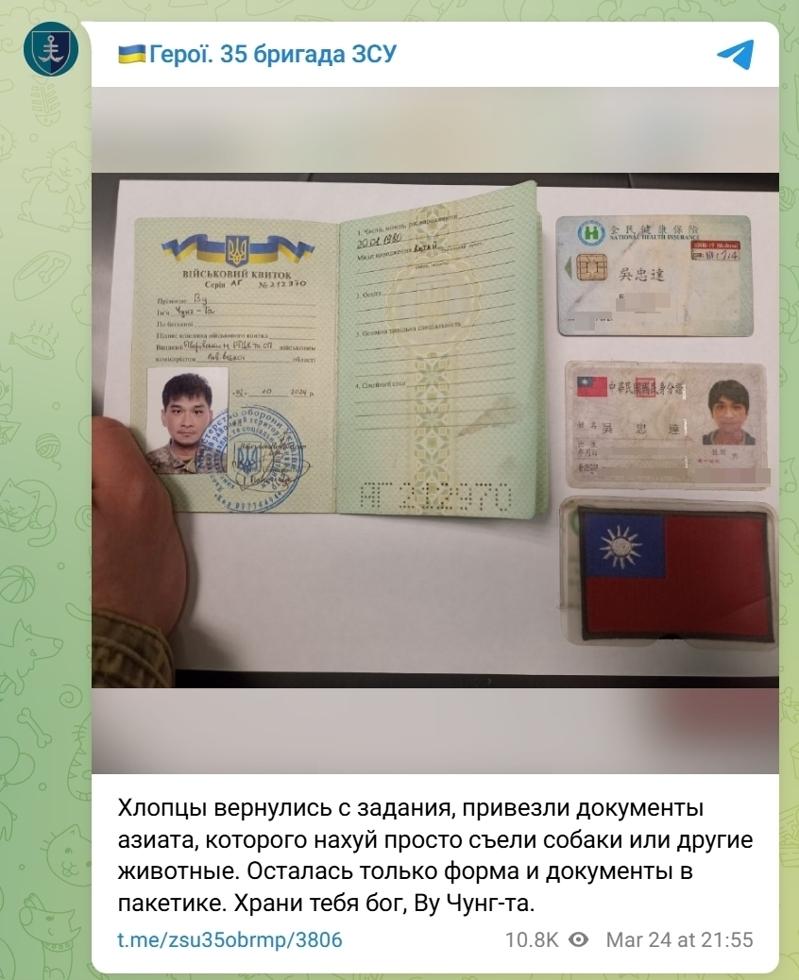 Герої. 35 бригада ЗСУ
ВІЙСЬКОВИЙ КВИТОК
Серія АГ № 212970
Прізвище Ву
Ім'я Чунг-Та
По батькові
Підпис власника військового квитка
Видано
військовим
комісаріатом
області
10 2024 р.
1. Число, місяць, рік народження
20.01.1980
Місце народження Китай
2. Освіта
4. Сімейний стан
АГ 212970
全民健康保險
NATIONAL HEALTH INSURANCE
吳忠達
中華民國國民身分證
姓名 吳忠達
Хлопцы вернулись с задания, привезли документы
азиата, которого нахуй просто съели собаки или другие
животные. Осталась только форма и документы в
пакетике. Храни тебя бог, Ву Чунг-та.
t.me/zsu35obrmp/3806 10.8K Mar 24 at 21:55